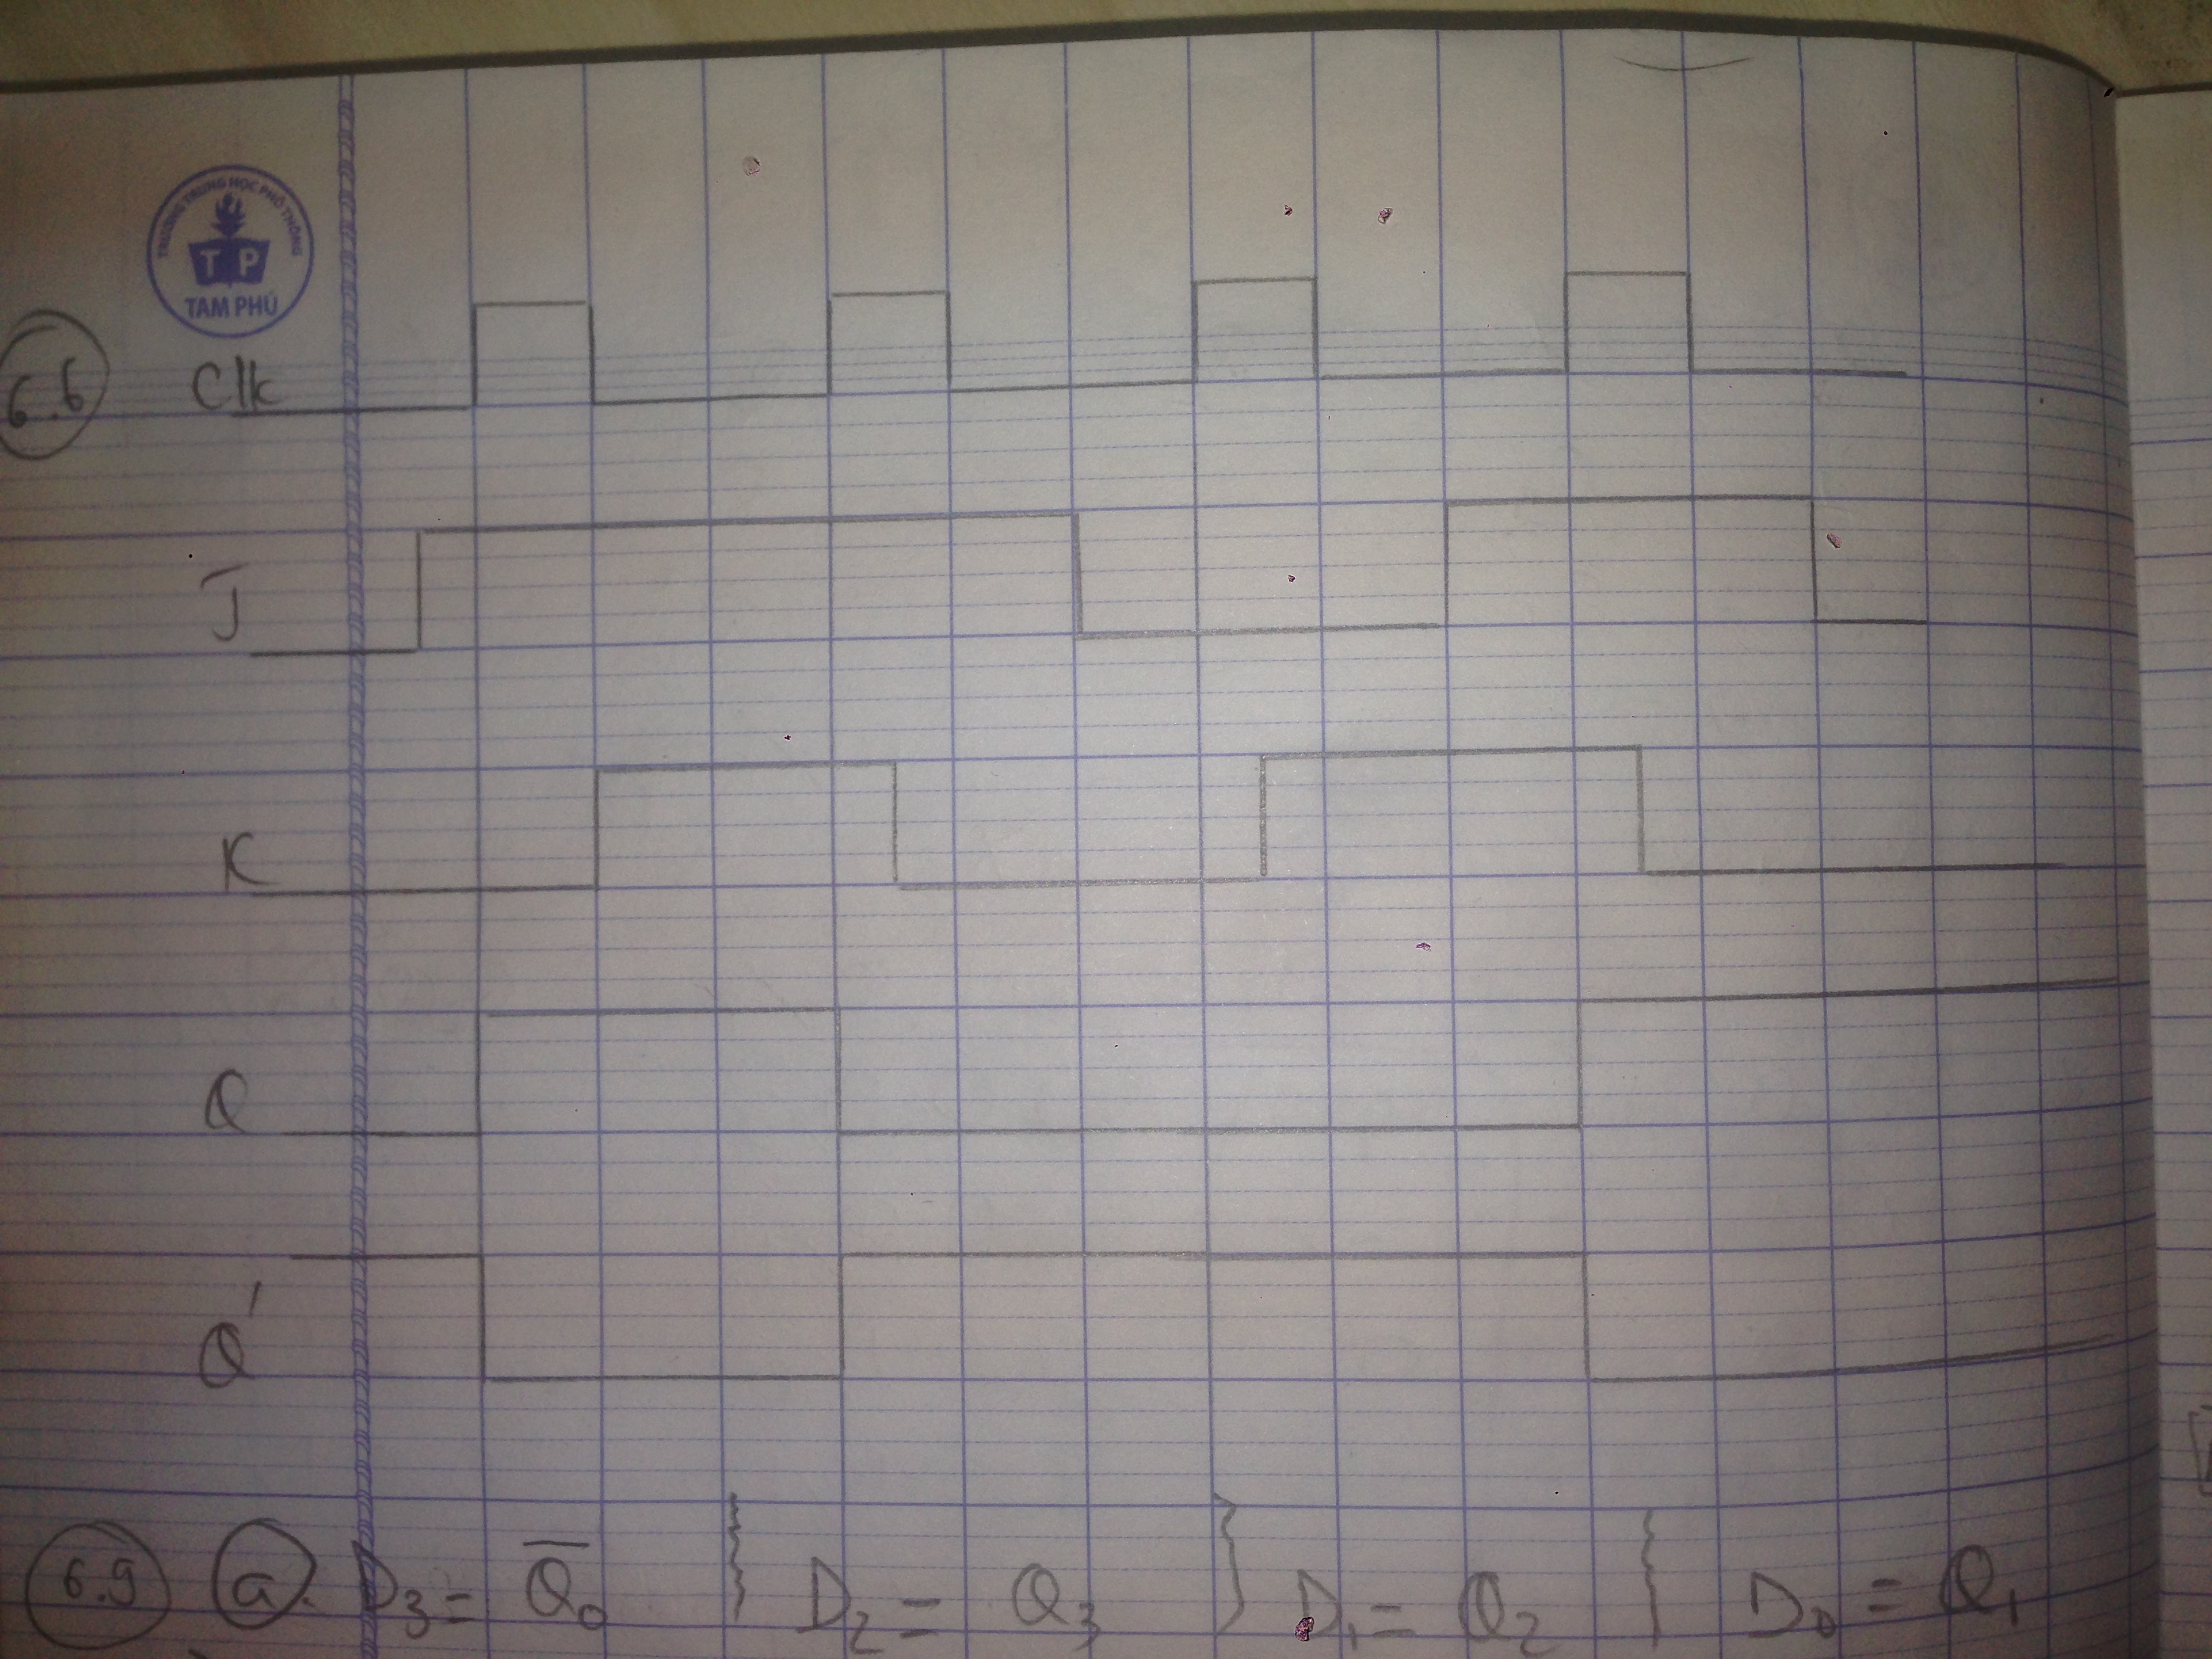 6.6
TRƯỜNG TRUNG HỌC PHỔ THÔNG
TP
TAM PHÚ
Clk
J
K
Q
Q'
6.9 a. D3 = Q̅0 D2 = Q3 D1 = Q2 D0 = Q1